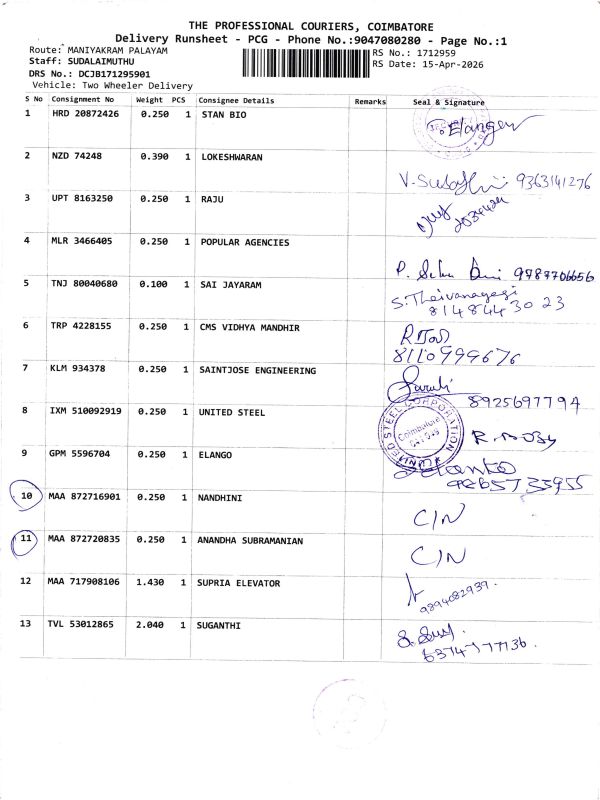 THE PROFESSIONAL COURIERS, COIMBATORE
Delivery Runsheet - PCG - Phone No.:9047080280 - Page No.:1
Route: MANIYAKRAM PALAYAM
RS No.: 1712959
Staff: SUDALAIMUTHU
RS Date: 15-Apr-2026
DRS No.: DCJB171295901
Vehicle: Two Wheeler Delivery
S No Consignment No Weight PCS Consignee Details Remarks Seal & Signature
1 HRD 20872426 0.250 1 STAN BIO
2 NZD 74248 0.390 1 LOKESHWARAN
9363141276
3 UPT 8163250 0.250 1 RAJU
4 MLR 3466405 0.250 1 POPULAR AGENCIES
9787706656
5 TNJ 80040680 0.100 1 SAI JAYARAM
S.Theivanayagi
8148443023
6 TRP 4228155 0.250 1 CMS VIDHYA MANDHIR
8110999676
7 KLM 934378 0.250 1 SAINTJOSE ENGINEERING
8925697794
8 IXM 510092919 0.250 1 UNITED STEEL
UNITED STEEL CORPORATION
Coimbatore
9 GPM 5596704 0.250 1 ELANGO
9265733955
10 MAA 872716901 0.250 1 NANDHINI
C/N
11 MAA 872720835 0.250 1 ANANDHA SUBRAMANIAN
C/N
12 MAA 717908106 1.430 1 SUPRIA ELEVATOR
9894082939.
13 TVL 53012865 2.040 1 SUGANTHI
6374777136.